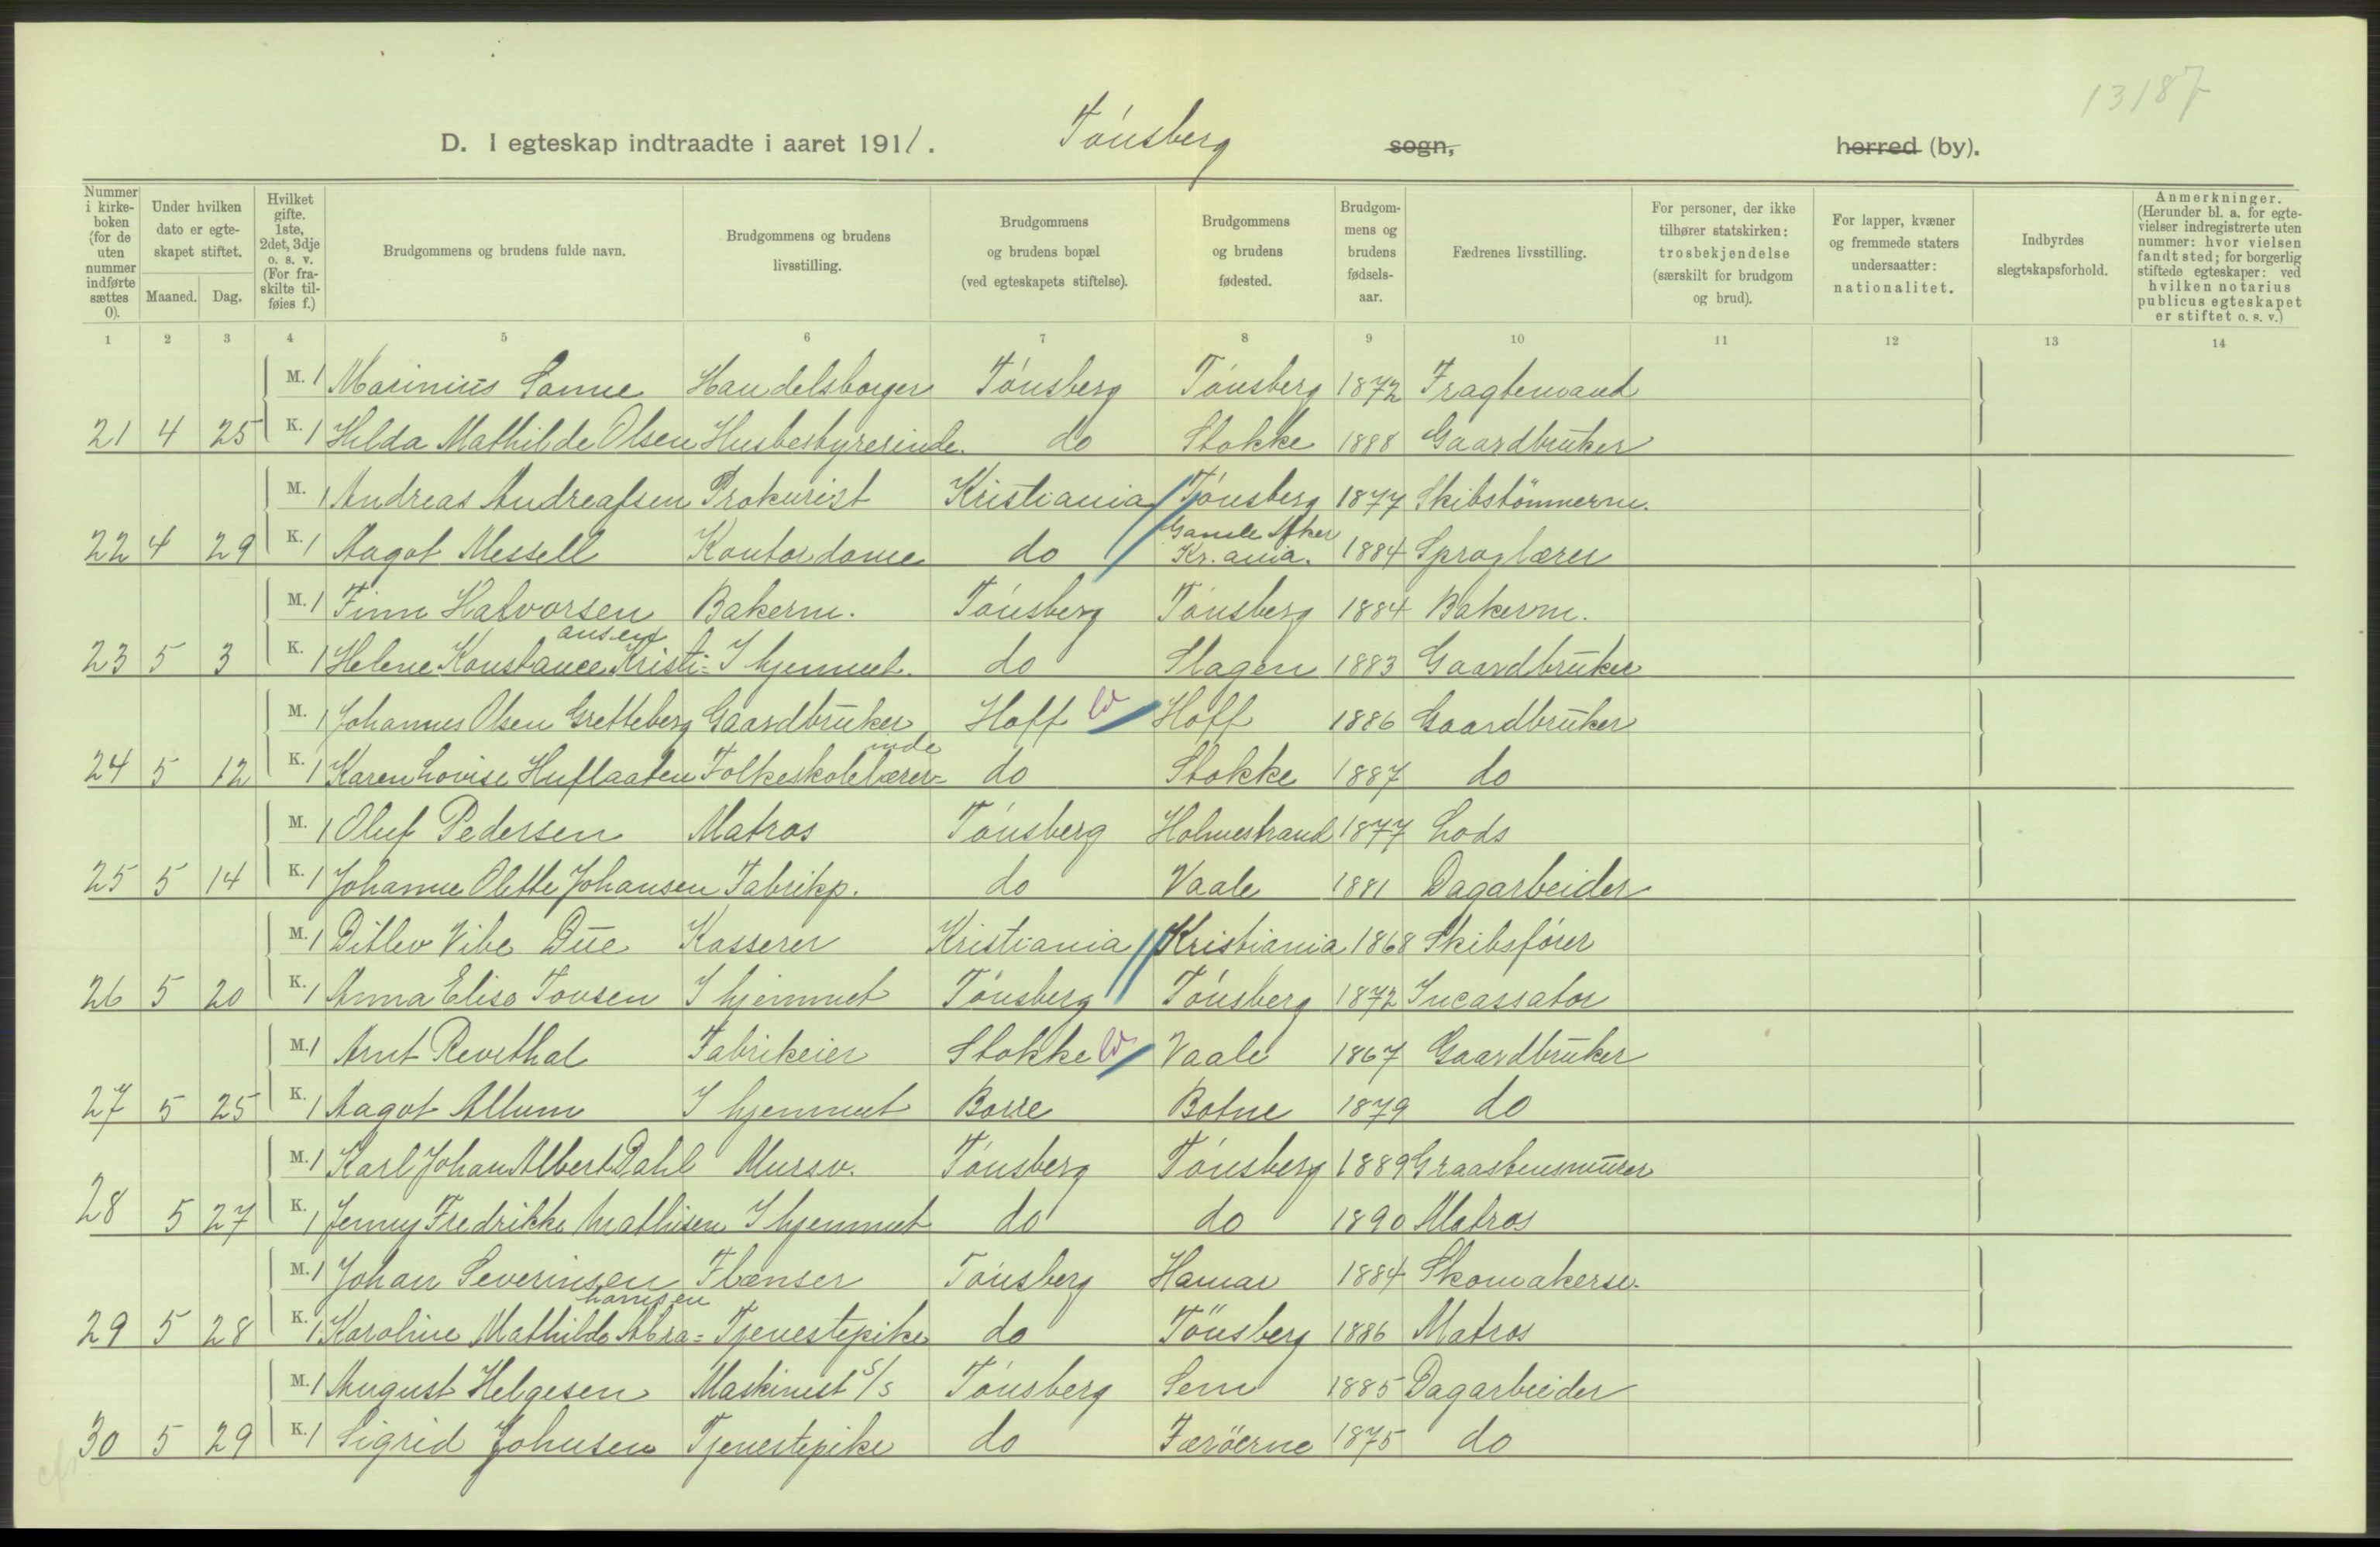 13187
D. I egteskap indtraadte i aaret 1911. Tønsberg sogn, herred (by).
Nummer i kirkeboken (for de uten nummer indførte sættes 0).
Under hvilken dato er egteskapet stiftet.
Maaned. Dag.
Hvilket gifte. 1ste, 2det, 3dje o. s. v. (For fraskilte tilføies f.)
Brudgommens og brudens fulde navn.
Brudgommens og brudens livsstilling.
Brudgommens og brudens bopæl (ved egteskapets stiftelse).
Brudgommens og brudens fødested.
Brudgommens og brudens fødselsaar.
Fædrenes livsstilling.
For personer, der ikke tilhører statskirken: trosbekjendelse (særskilt for brudgom og brud).
For lapper, kvæner og fremmede staters undersaatter: nationalitet.
Indbyrdes slegtskapsforhold.
Anmerkninger. (Herunder bl. a. for egtevielser indregistrerte uten nummer: hvor vielsen fandt sted; for borgerlig stiftede egteskaper: ved hvilken notarius publicus egteskapet er stiftet o. s. v.)
1 2 3 4 5 6 7 8 9 10 11 12 13 14
M. 1 Marinius Sanne Handelsborger Tønsberg Tønsberg 1872 Fragtemand
21 4 25 K. 1 Hilda Mathilde Olsen Husbestyrerinde. do Stokke 1888 Gaardbruker
M. 1 Andreas Andreassen Prokurist Kristiania Tønsberg 1877 Skibstömmerm.
22 4 29 K. 1 Aagot Messell Kontordame do Gamle Aker Kr.ania. 1884 Sproglærer
M. 1 Finn Halvorsen Bakerm. Tønsberg Tønsberg 1884 Bakerm.
23 5 3 K. 1 Helene Konstance Kristi=ansen I hjemmet. do Slagen 1883 Gaardbruker
M. 1 Johannes Olsen Gretteberg Gaardbruker Hoff Hoff 1886 Gaardbruker
24 5 12 K. 1 Karen Lovise Huflaaten Folkeskolelærer=inde do Stokke 1887 do
M. 1 Oluf Pedersen Matros Tønsberg Holmestrand 1877 Lods
25 5 14 K. 1 Johanne Olette Johansen Fabrikp. do Vaale 1881 Dagarbeider
M. 1 Ditlev Vibe Due Kasserer Kristiania Kristiania 1868 Skibsfører
26 5 20 K. 1 Anna Elise Tovsen I hjemmet Tønsberg Tønsberg 1872 Incassator
M. 1 Arnt Revethal Fabrikeier Stokke Vaale 1867 Gaardbruker
27 5 25 K. 1 Aagot Allum I hjemmet Borre Botne 1879 do
M. 1 Karl Johan Albert Dahl Mursv. Tønsberg Tønsberg 1889 Graastensmurer
28 5 27 K. 1 Jenny Fredrikke Mathisen I hjemmet do do 1890 Matros
M. 1 Johan Severinsen Flænser Tønsberg Hamar 1884 Skomakersv.
29 5 28 K. 1 Karoline Mathilde Abra=hamsen Tjenestepike do Tönsberg 1886 Matros
M. 1 August Helgesen Maskinist S/S Tønsberg Sem 1885 Dagarbeider
30 5 29 K. 1 Sigrid Johnsen Tjenestepike do Færöerne 1875 do